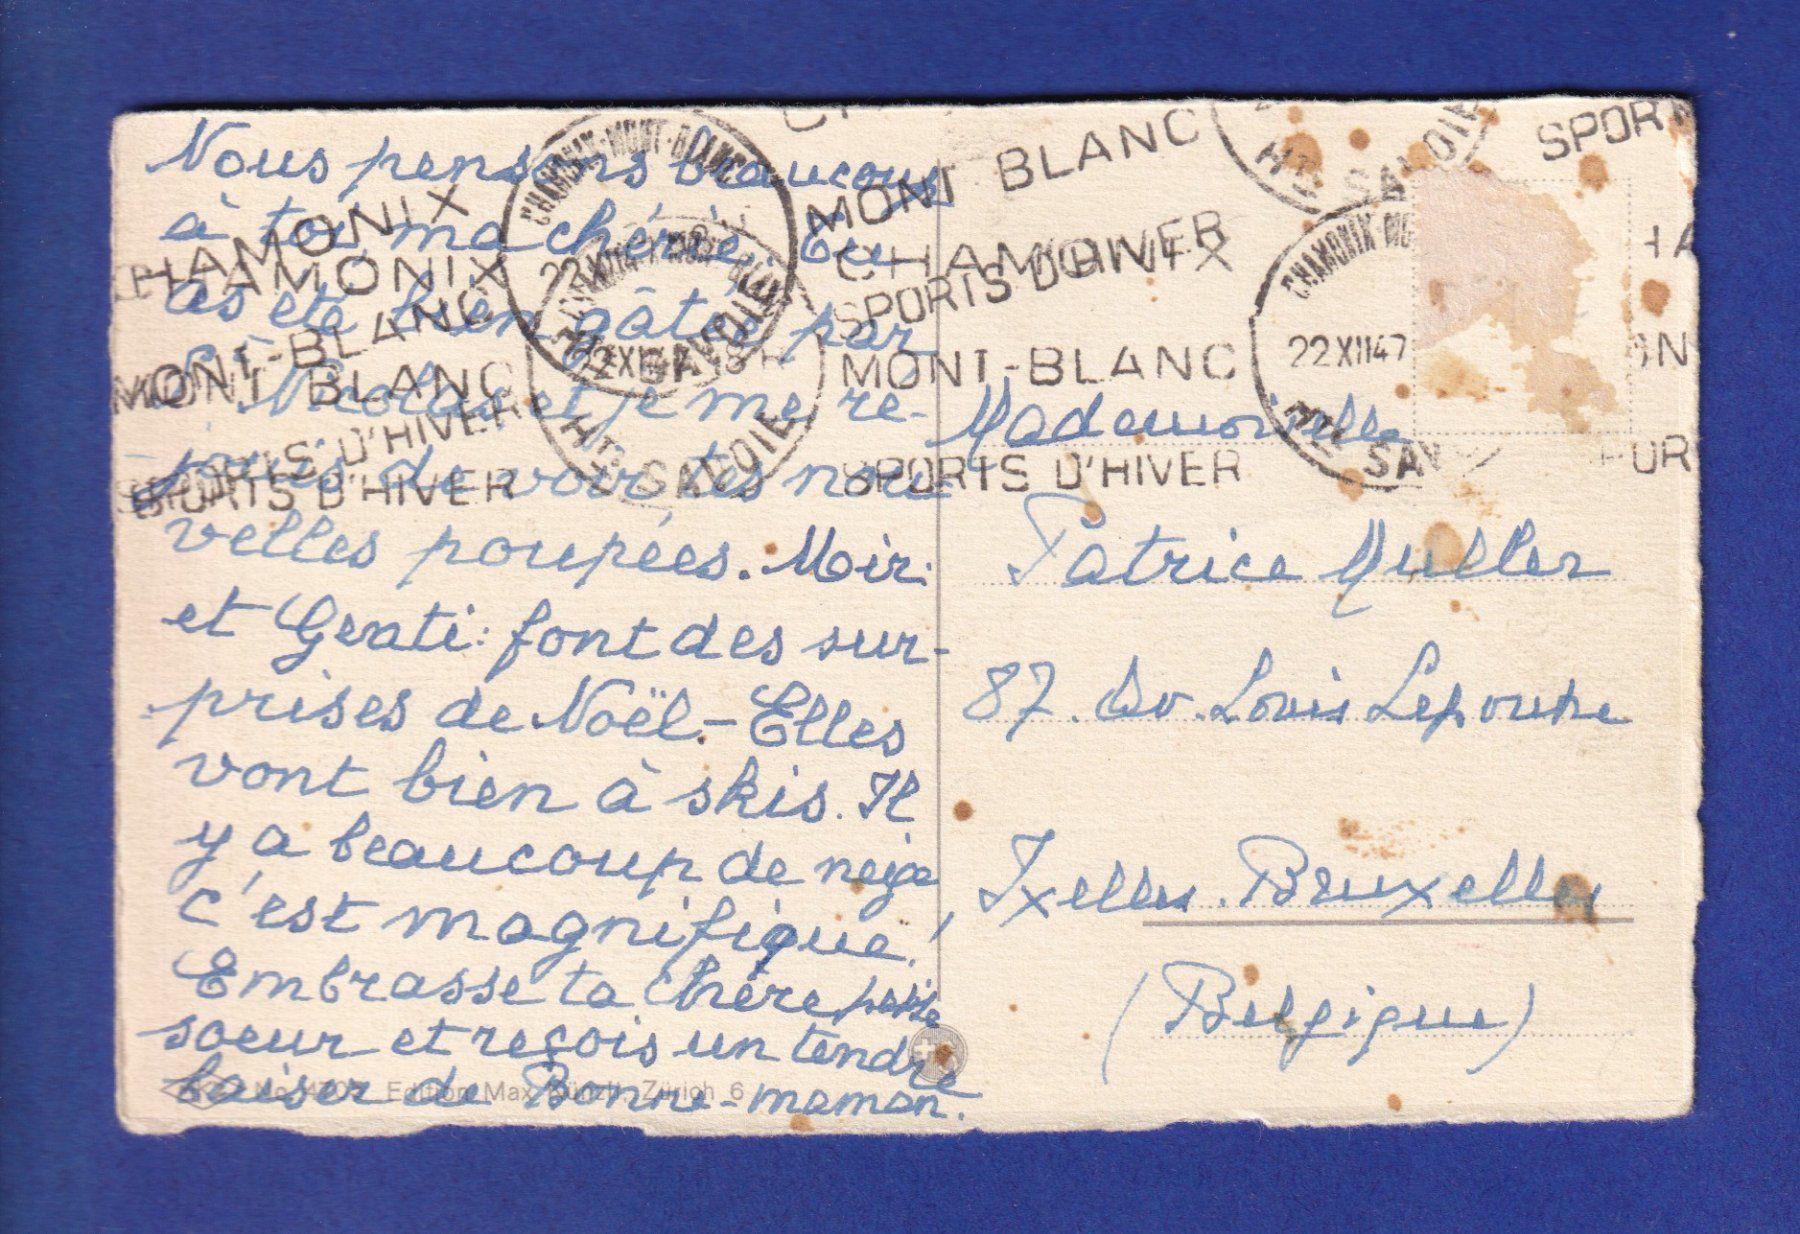 Nous pensons beaucoup
à toi ma chérie, tu
as été bien gâtée par
St. Nicolas et je me ré-
jouis de voir tes nou-
velles poupées. Miri
et Gerati: font des sur-
prises de Noël. - Elles
vont bien à skis. Il
y a beaucoup de neige
c'est magnifique!
Embrasse ta chère petite
soeur et reçois un tendre
baiser de Bonne-maman.
Edition Max Künzli, Zürich 6
CHAMONIX
MONT-BLANC
SPORTS D'HIVER
CHAMONIX
MONT BLANC
SPORTS D'HIVER
CHAMONIX-MONT-BLANC
22 XII 47
HTE SAVOIE
CHAMONIX-MONT-BLANC
22 XII 47 18 H
HTE SAVOIE
MONT BLANC
SPORTS D'HIVER
CHAMONIX
MONT-BLANC
SPORTS D'HIVER
HTE SAVOIE
SPOR
CHAMONIX-MO
22 XII 47
HTE SA
Mademoiselle
Patrice Muller
87. Av. Louis Lepoutre
Ixelles. Bruxelles
(Belgique)